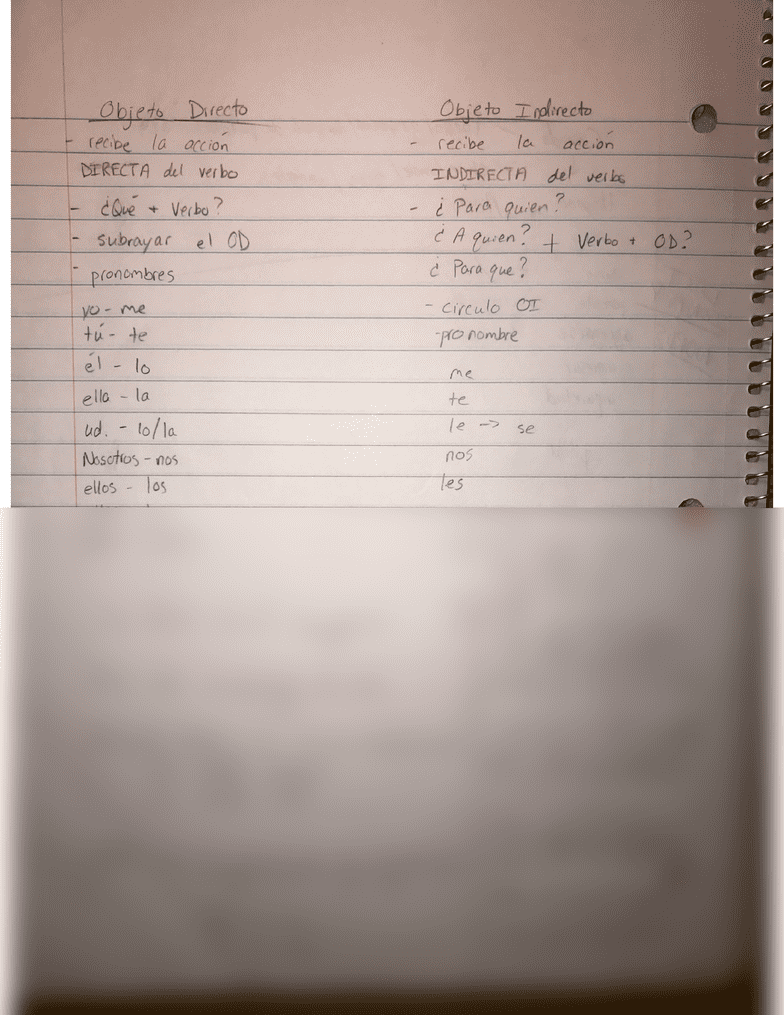 Objeto Directo
- recibe la acción
DIRECTA del verbo
- ¿Qué + Verbo?
- subrayar el OD
- pronombres
yo - me
tú - te
él - lo
ella - la
ud. - lo/la
Nosotros - nos
ellos - los
Objeto Indirecto
- recibe la acción
INDIRECTA del verbo
- ¿Para quien?
¿A quien? + Verbo + OD?
¿Para que?
- circulo OI
- pronombre
me
te
le -> se
nos
les